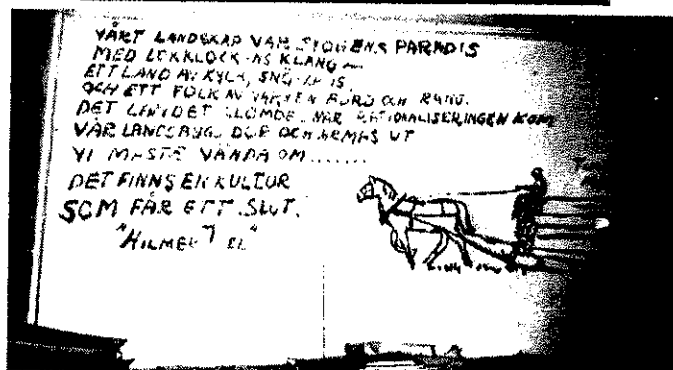 VÅRT LANDSKAP VAR SKOGENS PARADIS
MED KLANG
ETT LAND AV KYLA, SNÖ IS
OCH ETT FOLK AV BÖRD OCH RANG.
DET DET GLÖMDE NÄR RATIONALISERINGEN KOM
VÅR LANDSBYGD DÖR OCH ARMAS UT
VI MÅSTE VÄNDA OM.......
DET FINNS EN KULTUR
SOM FÅR ETT SLUT.